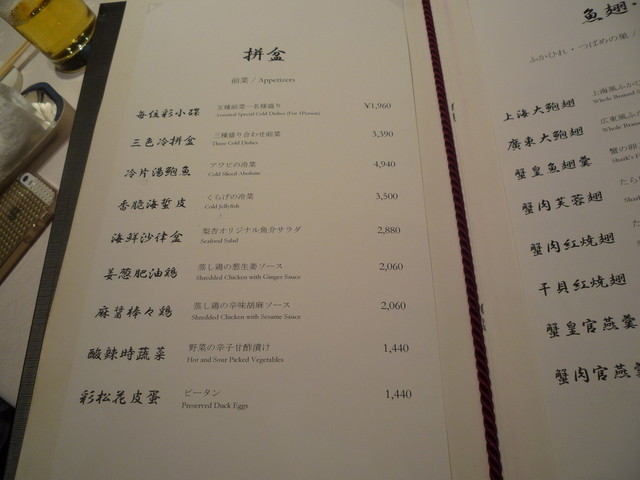 拼盆
前菜 / Appetizers
每位彩小碟 五種前菜一名様盛り ¥1,960
Assorted Special Cold Dishes (For 1Person)
三色冷拼盆 三種盛り合わせ前菜 3,390
Three Cold Dishes
冷片湯鮑魚 アワビの冷菜 4,940
Cold Sliced Abalone
香脆海蜇皮 くらげの冷菜 3,500
Cold Jellyfish
海鮮沙律盆 梨杏オリジナル魚介サラダ 2,880
Seafood Salad
姜葱肥油鶏 蒸し鶏の葱生姜ソース 2,060
Shredded Chicken with Ginger Sauce
麻醤棒々鶏 蒸し鶏の辛味胡麻ソース 2,060
Shredded Chicken with Sesame Sauce
酸辣時蔬菜 野菜の辛子甘酢漬け 1,440
Hot and Sour Packed Vegetables
彩松花皮蛋 ピータン 1,440
Preserved Duck Eggs
魚翅・
ふかひれ・つばめの巣 /
上海大鮑翅 上海風ふかひ
Whole Braised S
廣東大鮑翅 広東風ふか
Whole Braised
蟹皇魚翅羹 蟹の卵
Shark's F
蟹肉芙蓉翅 たら
Shark
蟹肉紅焼翅 た
干貝紅焼翅
蟹皇官燕羹
蟹肉官燕羹